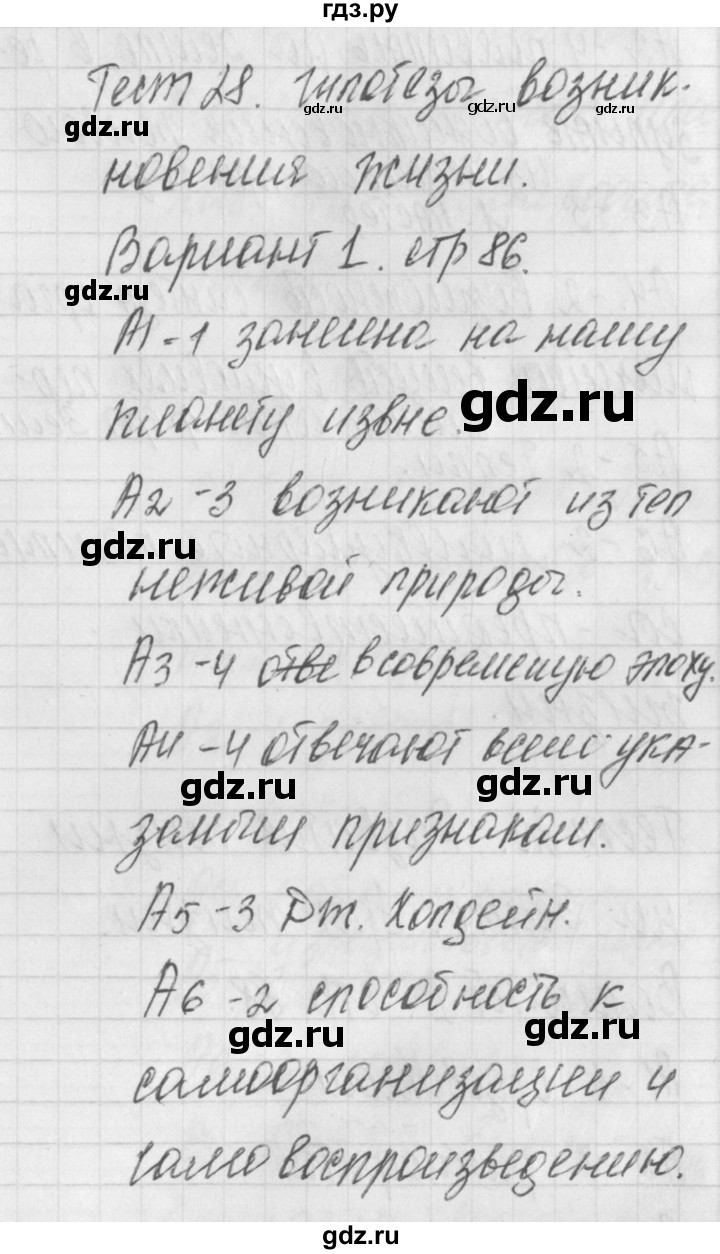 гдз.ру
Тест 28. Гипотезы возник-
gdz.ru gdz.ru gdz.ru
новения жизни.
Вариант 1. стр 86.
gdz.ru
А1-1 занесена на нашу
планету извне.
gdz.ru
А2-3 возникают из тел
gdz.ru
неживой природы.
А3-4 отве в современную эпоху.
А4-4 отвечают всем ука-
gdz.ru gdz.ru
занным признакам.
А5-3 Дж. Холдейн.
А6-2 способность к
gdz.ru gdz.ru
самоорганизации и
самовоспроизведению.
gdz.ru